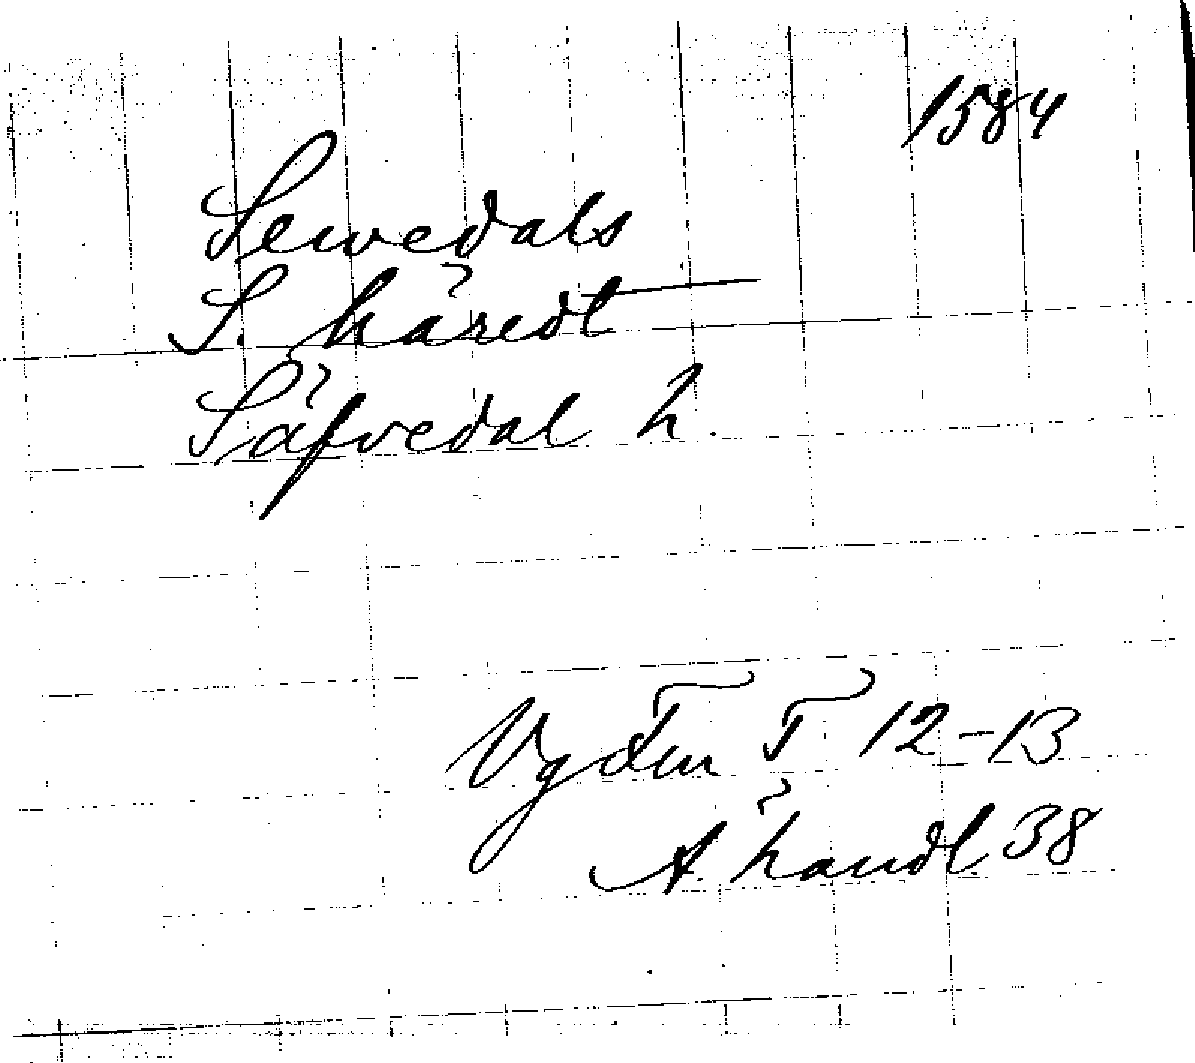 1584
Sewedals
S. häredt
Säfvedal h.
Vg Tiu T 12-13
A handl. 38